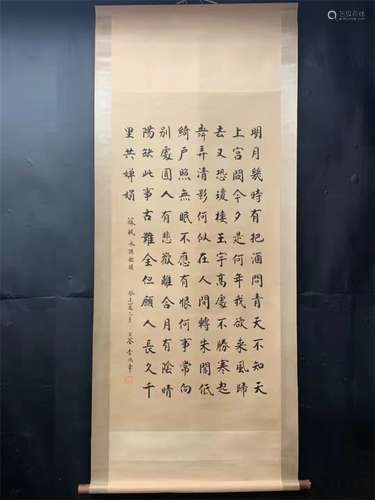 明月幾時有把酒問青天不知天
上宮闕今夕是何年我欲乘風歸
去又恐瓊樓玉宇高處不勝寒起
舞弄清影何似在人間轉朱閣低
綺戶照無眠不應有恨何事常向
別處圓人有悲歡離合月有陰晴
陽缺此事古難全但願人長久千
里共嬋娟 蘇軾 水調歌頭